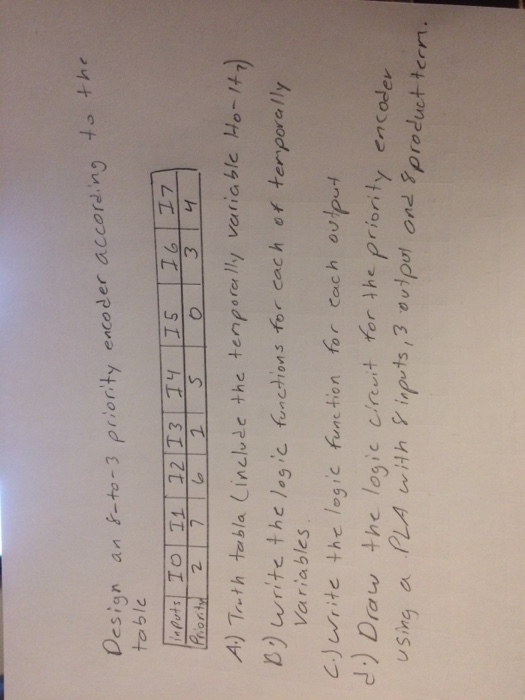 Design an 8-to-3 priority encoder according to the
table
inputs I0 I1 I2 I3 I4 I5 I6 I7
Priority 2 7 6 1 5 0 3 4
A.) Truth tabla (include the temporally variable H0-H7)
B.) Write the logic functions for each of temporally
variables.
C.) write the logic function for each output
d.) Draw the logic circuit for the priority encoder
using a PLA with 8 inputs, 3 output and 8 product term.